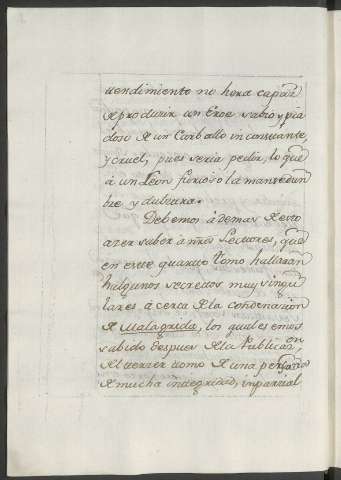 tendimiento no hera capaz
de produzir un Eroe sabio y pia
doso de un Carballo inconstante,
y cruel; pues seria pedir, lo que
á un Leon furioso la mansedum
bre y dulzura.
Debemos ademas de esto
azer saber á nros Lectores, que
en este quarto tomo hallaran
halgunos secretos muy singu
lares á cerca de la condenazion
de Malagrida, los quales emos
sabido despues de la Publicaz.on
del terzer tomo de una persona
de mucha integridad, inparzial